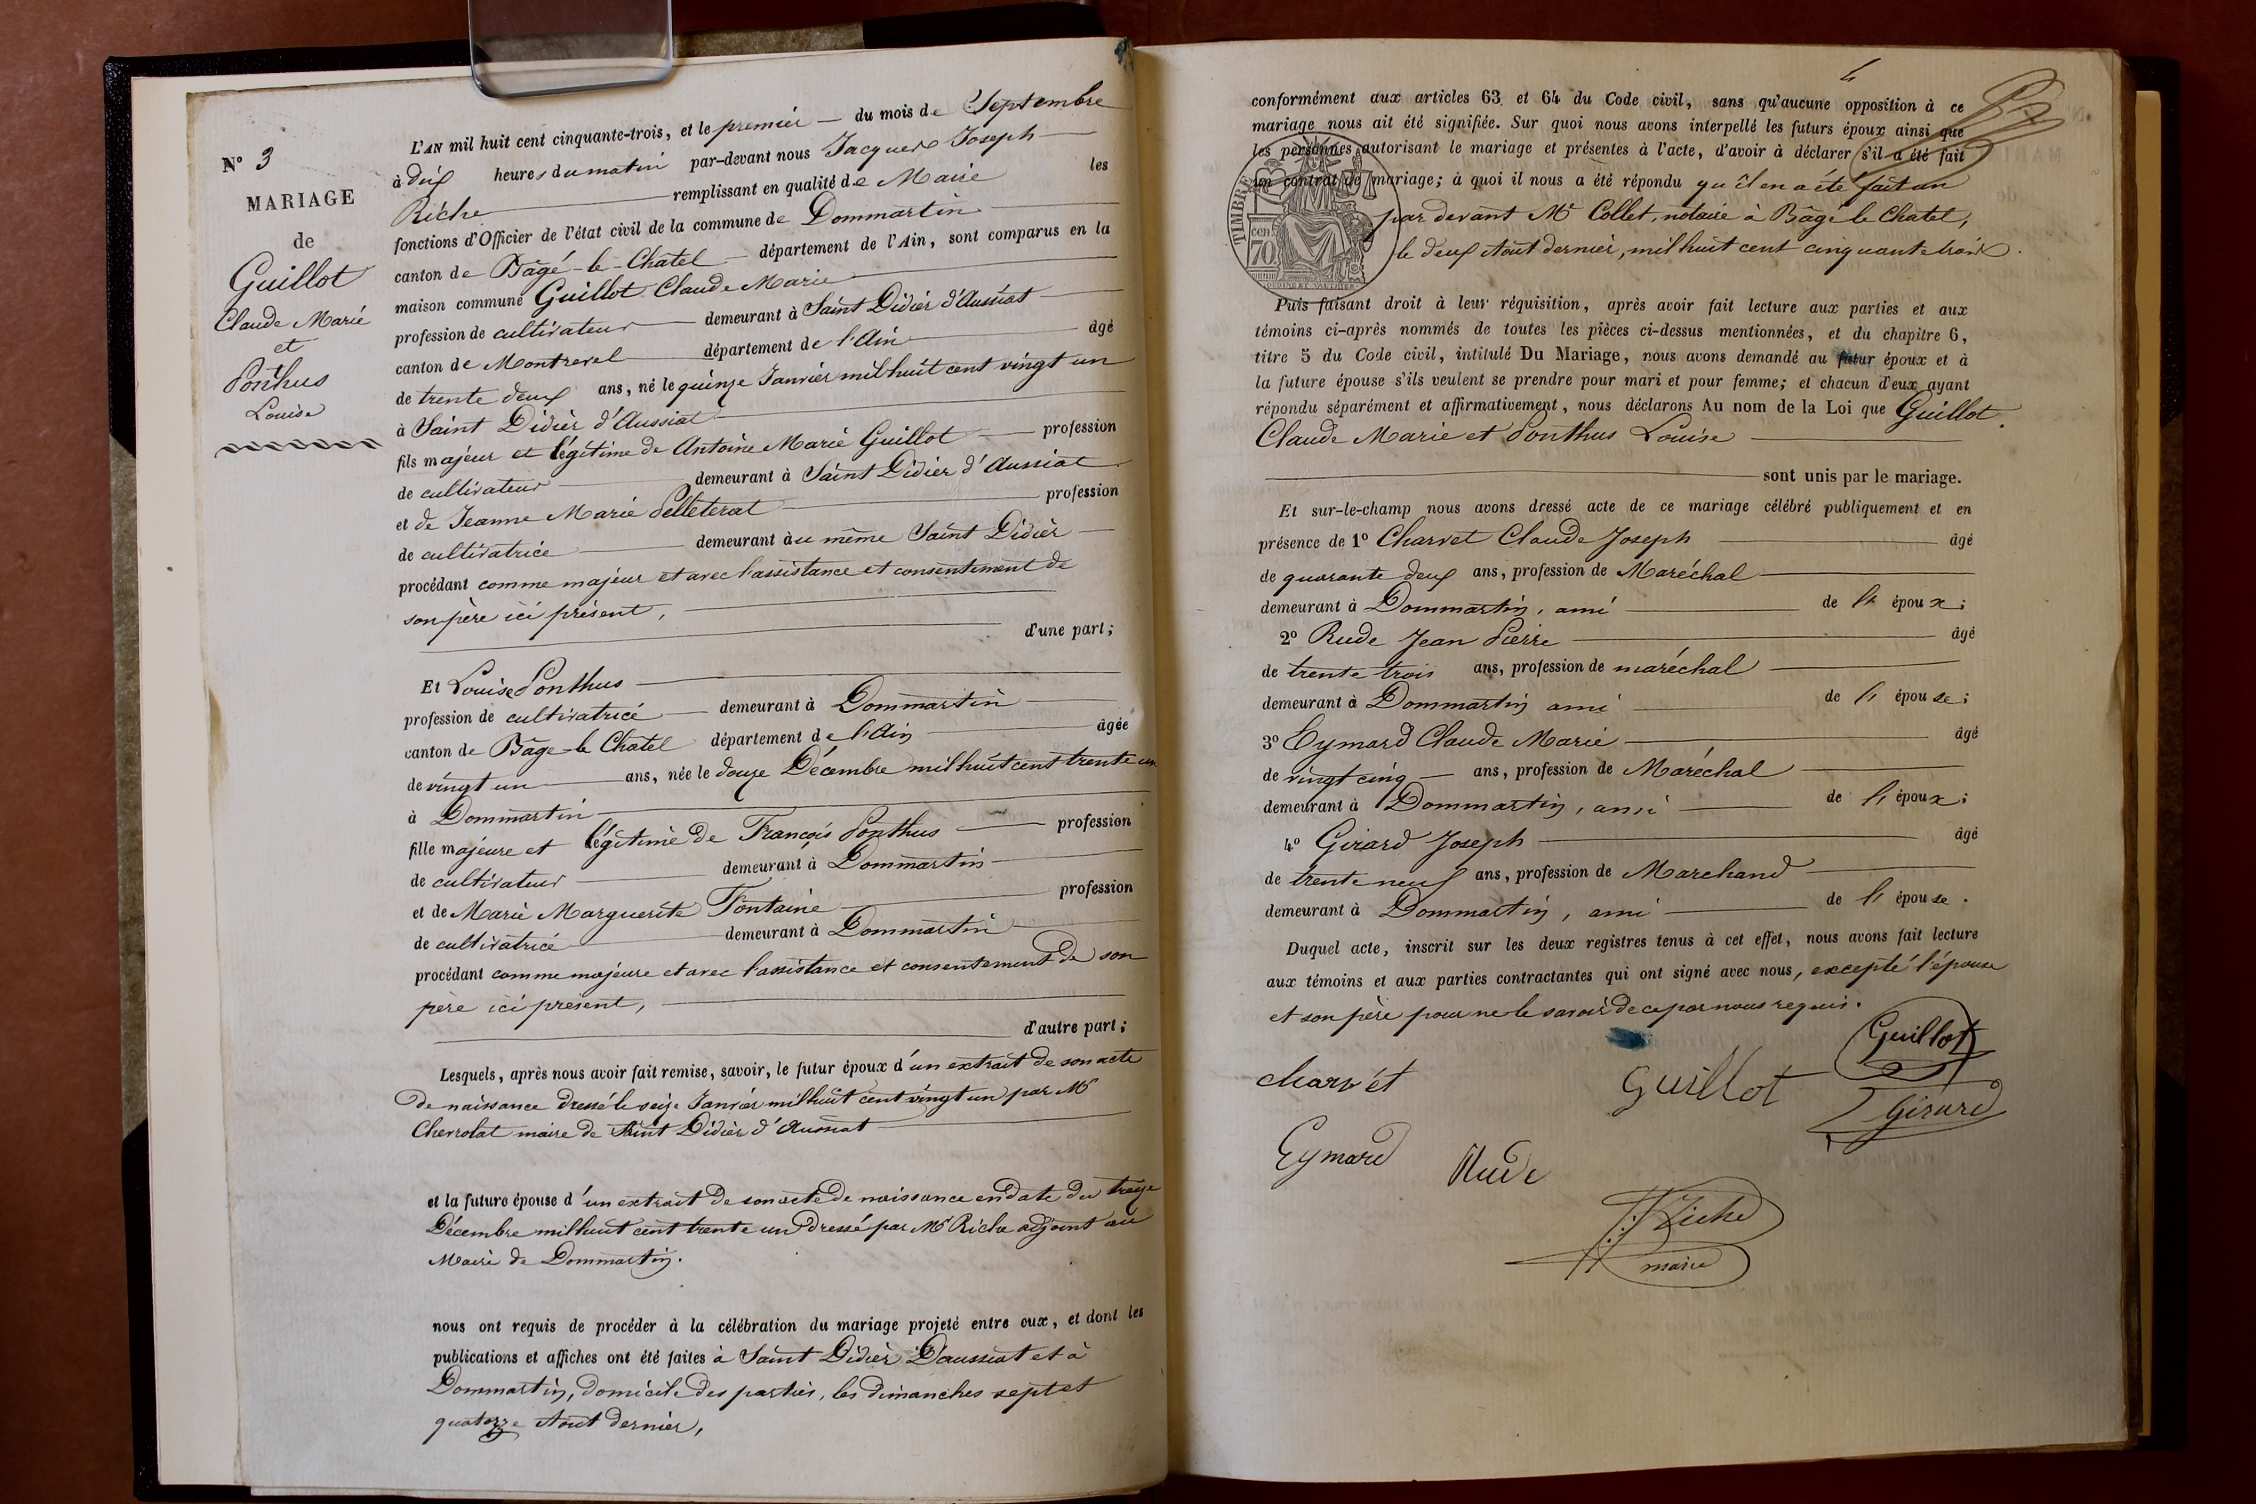 N° 3
MARIAGE
de
Guillot
Claude Marie
et
Ponthus
Louise
L'AN mil huit cent cinquante-trois, et le premier du mois de Septembre
à dix heures du matin par-devant nous Jacques Joseph
Riche remplissant en qualité de Maire les
fonctions d'Officier de l'état civil de la commune de Dommartin
canton de Bâgé-le-Chatel département de l'Ain, sont comparus en la
maison commune Guillot Claude Marie
profession de cultivateur demeurant à Saint Didier d'Aussiat
canton de Montrevel département de l'Ain âgé
de trente deux ans, né le quinze Janvier mil huit cent vingt un
à Saint Didier d'Aussiat
fils majeur et légitime de Antoine Marie Guillot profession
de cultivateur demeurant à Saint Didier d'Aussiat
et de Jeanne Marie Pelleterat profession
de cultivatrice demeurant au même Saint Didier
procédant comme majeur et avec l'assistance et consentement de
son père ici présent,
d'une part;
Et Louise Ponthus
profession de cultivatrice demeurant à Dommartin
canton de Bâgé-le Chatel département de l'Ain âgée
de vingt un ans, née le douze Décembre mil huit cent trente un
à Dommartin
fille majeure et légitime de François Ponthus profession
de cultivateur demeurant à Dommartin
et de Marie Marguerite Fontaine profession
de cultivatrice demeurant à Dommartin
procédant comme majeure et avec l'assistance et consentement de son
père ici présent,
d'autre part;
Lesquels, après nous avoir fait remise, savoir, le futur époux d'un extrait de son acte
de naissance dressé le seize Janvier mil huit cent vingt un par Mr
Chevrolat maire de Saint Didier d'Aussiat
et la future épouse d'un extrait de son acte de naissance en date du treize
Décembre mil huit cent trente un dressé par Mr Riche adjoint au
Maire de Dommartin.
nous ont requis de procéder à la célébration du mariage projeté entre eux, et dont les
publications et affiches ont été faites à Saint Didier D'aussiat et à
Dommartin, domicile des parties, les dimanches sept et
quatorze Aout dernier,
4
conformément aux articles 63 et 64 du Code civil, sans qu'aucune opposition à ce
mariage nous ait été signifiée. Sur quoi nous avons interpellé les futurs époux ainsi que
les personnes autorisant le mariage et présentes à l'acte, d'avoir à déclarer s'il a été fait
un contrat de mariage; à quoi il nous a été répondu qu'il en a été fait un
par devant Mr Collet, notaire à Bâgé le Chatel,
le deux Aout dernier, mil huit cent cinquante trois.
TIMBRE
70 cen
Puis faisant droit à leur réquisition, après avoir fait lecture aux parties et aux
témoins ci-après nommés de toutes les pièces ci-dessus mentionnées, et du chapitre 6,
titre 5 du Code civil, intitulé Du Mariage, nous avons demandé au futur époux et à
la future épouse s'ils veulent se prendre pour mari et pour femme; et chacun d'eux ayant
répondu séparément et affirmativement, nous déclarons Au nom de la Loi que Guillot
Claude Marie et Ponthus Louise
sont unis par le mariage.
Et sur-le-champ nous avons dressé acte de ce mariage célébré publiquement et en
présence de 1° Charvet Claude Joseph âgé
de quarante deux ans, profession de Maréchal
demeurant à Dommartin, ami de l' époux;
2° Rude Jean Pierre âgé
de trente trois ans, profession de maréchal
demeurant à Dommartin ami de l' épouse;
3° Eymard Claude Marie âgé
de vingt cinq ans, profession de Maréchal
demeurant à Dommartin, ami de l' époux;
4° Girard Joseph âgé
de trente neuf ans, profession de Marchand
demeurant à Dommartin, ami de l' épouse.
Duquel acte, inscrit sur les deux registres tenus à cet effet, nous avons fait lecture
aux témoins et aux parties contractantes qui ont signé avec nous, excepté l'épouse
et son père pour ne le savoir de ce par nous requis.
Guillot
charvet Guillot
Girard
Eymard Rude
Riche
maire